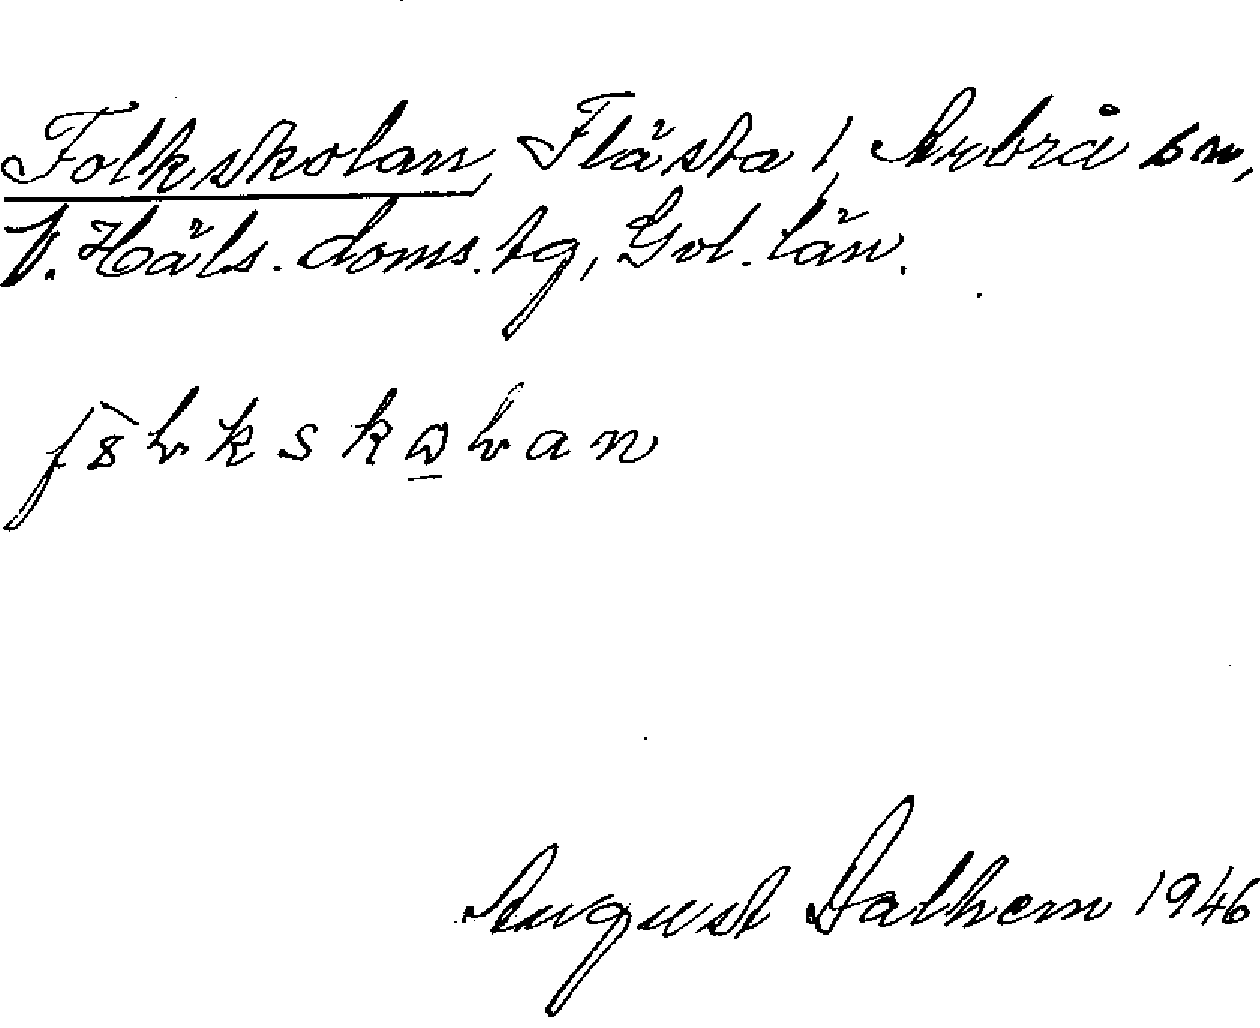 Folkskolan, Flästa 1, Arbrå sn,
V. Häls. doms. tg, Gvl. län.
August Dalhem 1946